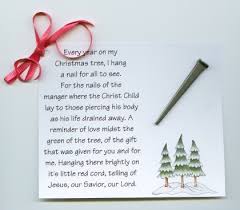 Every year on my
Christmas tree, I hang
a nail for all to see.
For the nails of the
manger where the Christ Child
lay to those piercing his body
as his life drained away. A
reminder of love midst the
green of the tree, of the gift
that was given for you and for
me. Hanging there brightly on
it's little red cord, telling of
Jesus, our Savior, our Lord.